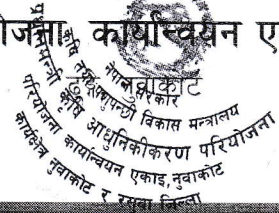 योजना कार्यान्वयन ए
नुवाकोट
नेपाल सरकार
कृषि तथा पशुपन्छी विकास मन्त्रालय
प्रधानमन्त्री कृषि आधुनिकीकरण परियोजना
परियोजना कार्यान्वयन एकाइ, नुवाकोट
कार्यक्षेत्र नुवाकोट र रसुवा जिल्ला